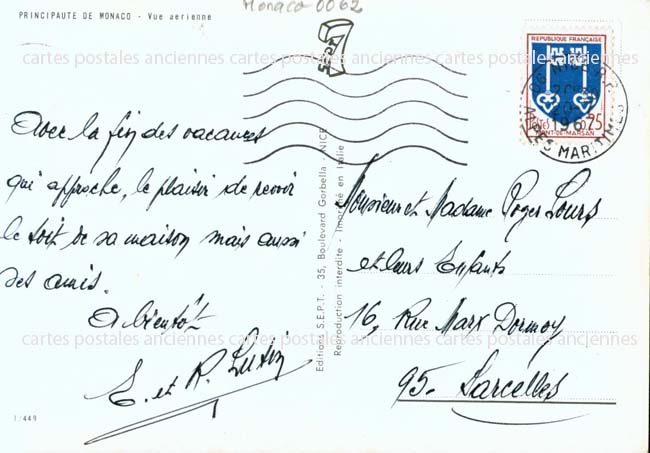 Monaco 0062
PRINCIPAUTE DE MONACO - Vue aérienne
REPUBLIQUE FRANÇAISE
MONT-DE-MARSAN
06 NICE R.P.
1967
ALPES MARITIMES
cartes postales anciennes cartes postales anciennes cartes postales anciennes
Avec la fin des vacances
qui approche, le plaisir de revoir
le toit de sa maison mais aussi
ses amis.
A bientôt
E. et R.
Editions S.E.P.T. - 35, Boulevard Gorbella - NICE
Reproduction interdite - Imprimé en Italie
Monsieur et Madame Roger Lours
et leurs Enfants
16, Rue Marx Dormoy
95. Sarcelles
cartes postales anciennes cartes postales anciennes cartes postales anciennes
1/449